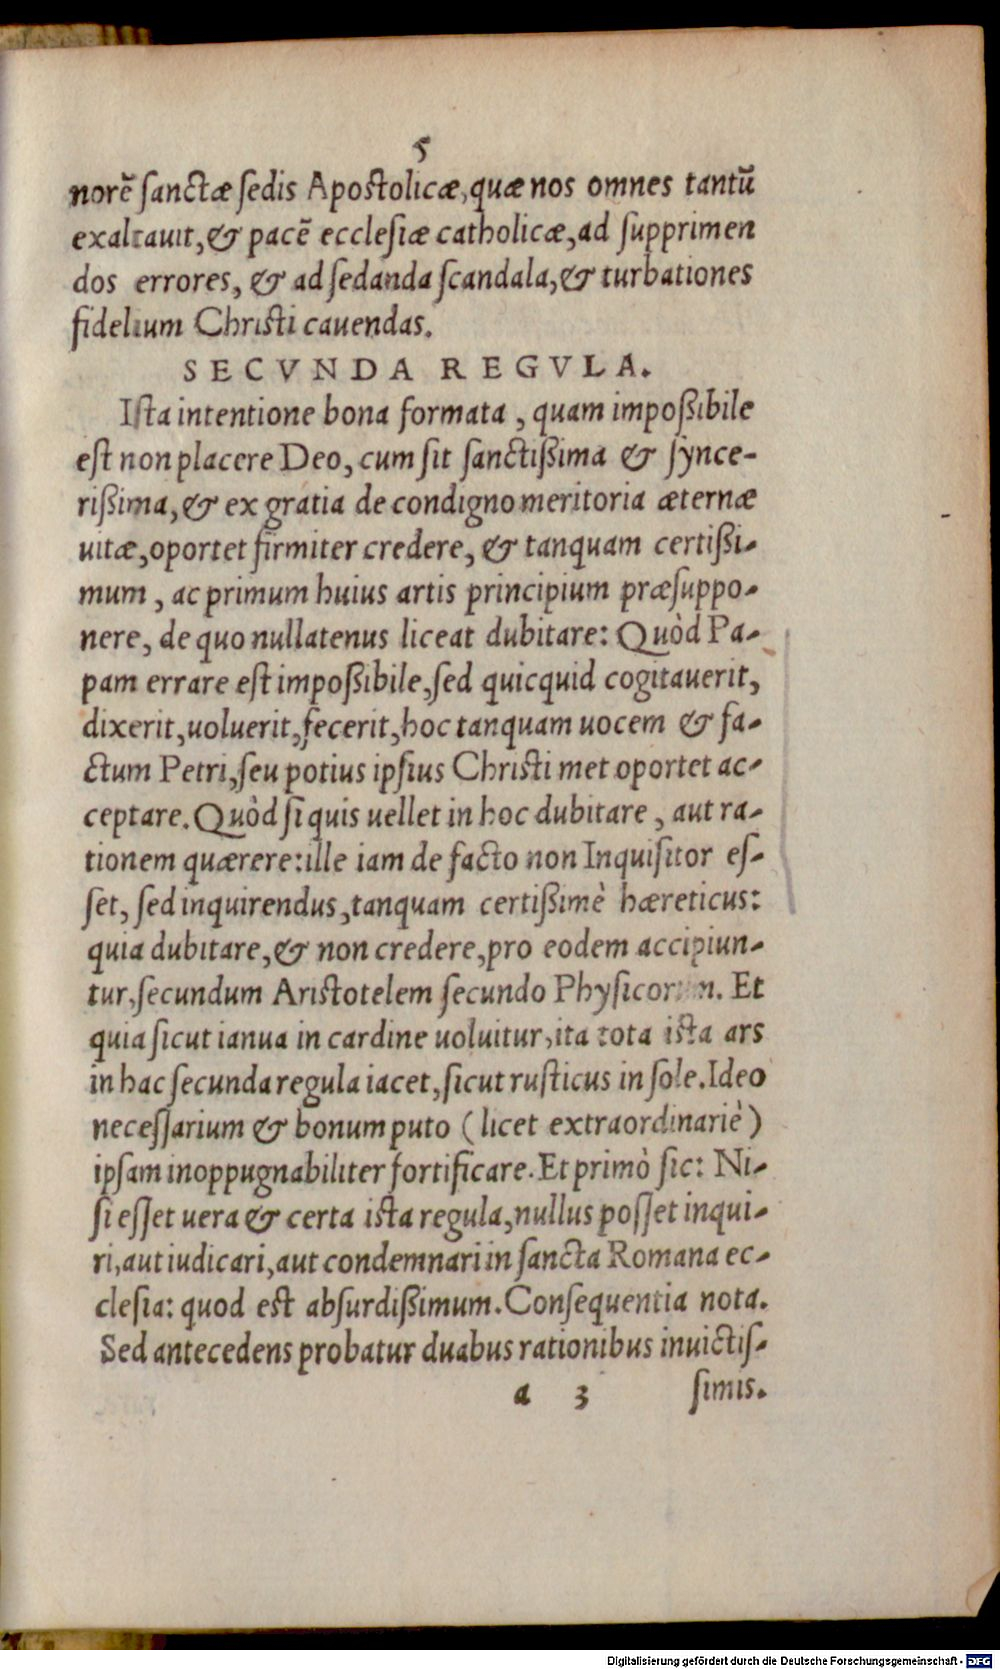 5
norē ſanctæ ſedis Apoſtolicæ, quæ nos omnes tantū
exaltauit, & pacē eccleſiæ catholicæ, ad ſupprimen
dos errores, & ad ſedanda ſcandala, & turbationes
fidelium Chriſti cauendas.
SECVNDA REGVLA.
Iſta intentione bona formata , quam impoßibile
eſt non placere Deo, cum ſit ſanctißima & ſynce-
rißima, & ex gratia de condigno meritoria æternæ
uitæ, oportet firmiter credere, & tanquam certißi-
mum , ac primum huius artis principium præſuppo-
nere, de quo nullatenus liceat dubitare: Quòd Pa-
pam errare eſt impoßibile, ſed quicquid cogitauerit,
dixerit, uoluerit, fecerit, hoc tanquam uocem & fa-
ctum Petri, ſeu potius ipſius Chriſti met oportet ac-
ceptare. Quòd ſi quis uellet in hoc dubitare , aut ra-
tionem quærere: ille iam de facto non Inquiſitor eſ-
ſet, ſed inquirendus, tanquam certißimè hæreticus:
quia dubitare, & non credere, pro eodem accipiun-
tur, ſecundum Ariſtotelem ſecundo Phyſicorum. Et
quia ſicut ianua in cardine uoluitur, ita tota iſta ars
in hac ſecunda regula iacet, ſicut ruſticus in ſole. Ideo
neceſſarium & bonum puto (licet extraordinariè)
ipſam inoppugnabiliter fortificare. Et primò ſic: Ni-
ſi eſſet uera & certa iſta regula, nullus poſſet inqui-
ri, aut iudicari, aut condemnari in ſancta Romana ec-
cleſia: quod eſt abſurdißimum. Conſequentia nota.
Sed antecedens probatur duabus rationibus inuictiſ-
a 3 ſimis.
Digitalisierung gefördert durch die Deutsche Forschungsgemeinschaft - DFG